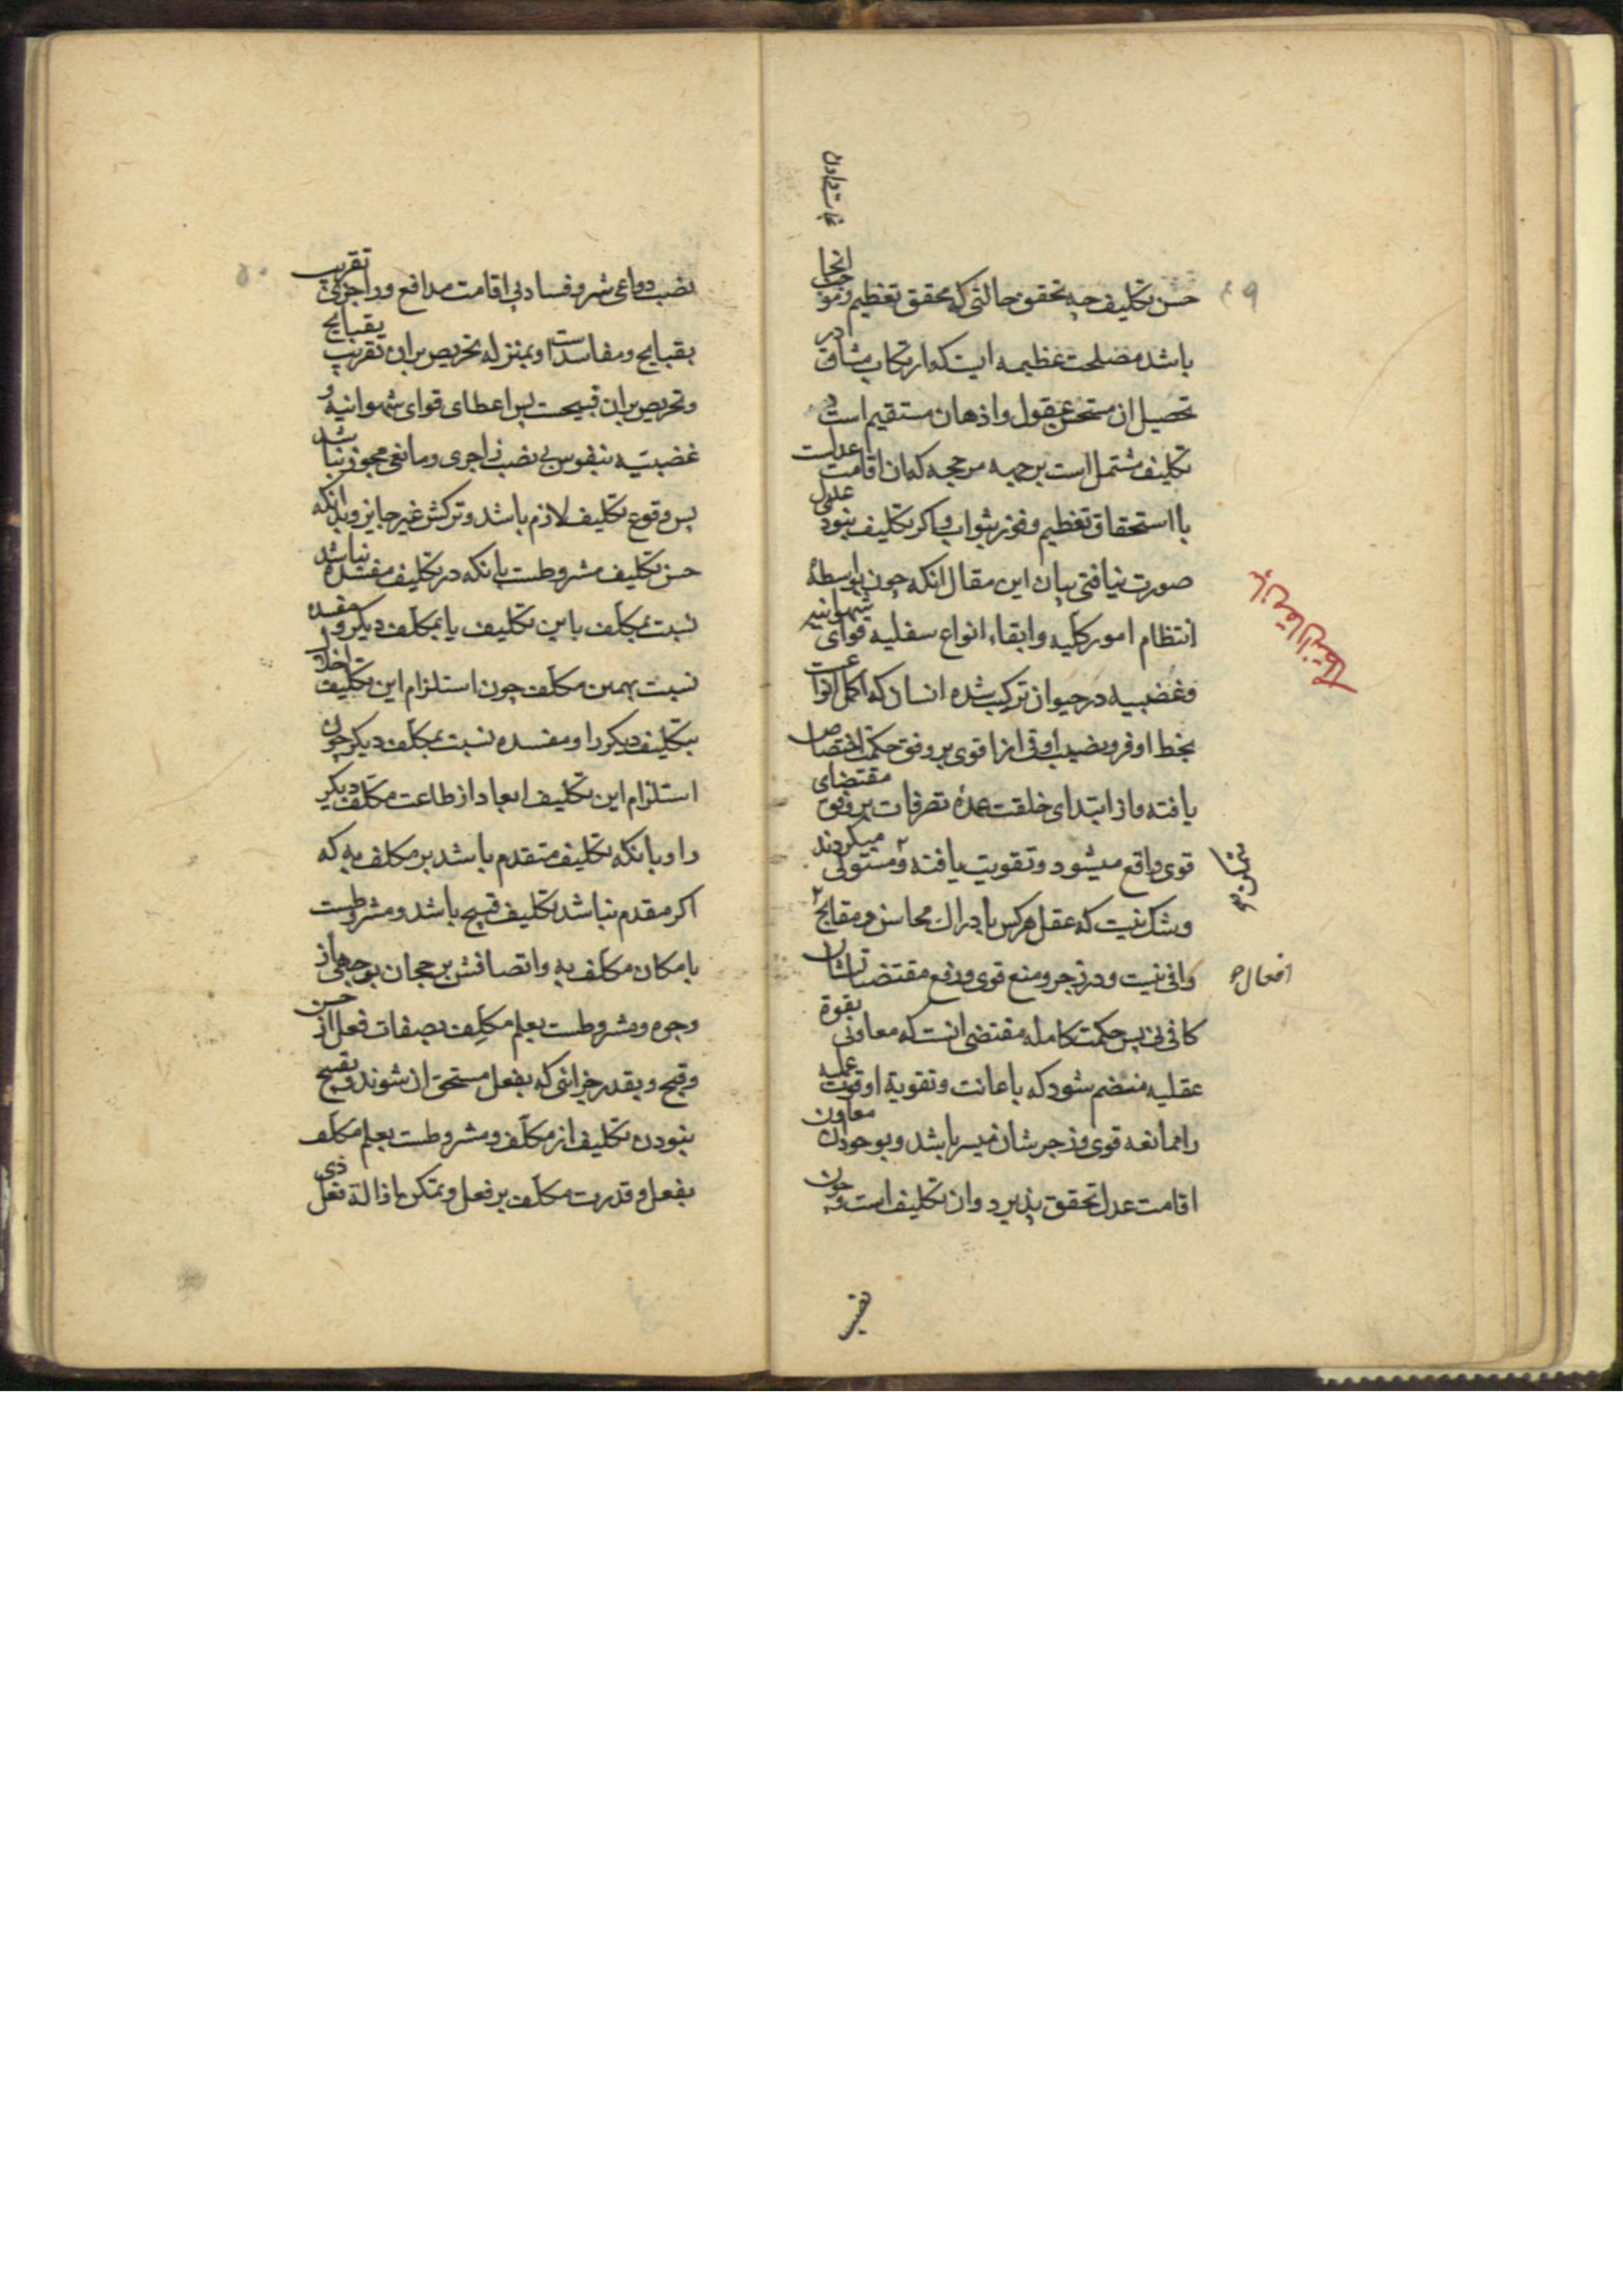 حسن تکلیف چه تحقق حالتی که محقق تعظیم و موجب انحا
باشد مصلحت عظیمه ایست که ارتکاب مشاق در
تحصیل ان مستحسن عقول و اذهان مستقیم است و
تکلیف مشتمل است بر جهه مرجحه که ان اقامت عدلست
با استحقاق تعظیم و فوز بثواب و اکر تکلیف نبود عدل
صورت نیافتی بیان این مقال انکه چون بواسطهٔ
انتظام امور کلیه و ابقاء انواع سفلیه قوای شهوانیه
و غضبیه در حیوان ترکیب شده انسان که اکمل انواعست
بخط اوفر و نصیب اوفی از قوی بر وفق حکمت اختصاص
یافته و از ابتدای خلقت عمدهٔ تصرفات بر وفق مقتضای
قوی واقع میشود و تقویت یافته و مستولی میکردند
و شک نیست که عقل هرکس بادراک محاسن و مقابح
وافی نیست و در زجر و منع قوی و رفع مقتضیاتشان
افعال
کافی نی پس حکمت کامله مقتضی انست که معاونی بقوة
عقلیه منضم شود که باعانت و تقویة او قوت عملیه
را ممانعه قوی و زجرشان میسر باشد و بوجود ان معاون
اقامت عدل تحقق پذیرد و ان تکلیف است و چون
نصب
نصب دواعی شر و فساد بی اقامت مدافع و زواجر تقریب
بقبایح و مفاسد است او بمنزله تحریص بران تقریب بقبایح
و تحریص بران قبیحست پس اعطای قوای شهوانیه و
غضبیه بنفوس بی نصب زاجری و مانعی مجوز نباشد
پس وقوع تکلیف لازم باشد و ترکش غیر جایز و بدانکه
حسن تکلیف مشروطست بانکه در تکلیف مفسده نباشد
نسبت بمکلف باین تکلیف یا بمکلف دیکر و مفسده
نسبت بهمین مکلف چون استلزام این تکلیف اخلال
بتکلیف دیکر را و مفسده نسبت بمکلف دیکر چون
استلزام این تکلیف ابعاد از طاعت مکلف دیکر
را و بانکه تکلیف متقدم باشد بر مکلف به که
اکر مقدم نباشد تکلیف قبیح باشد و مشروطست
بامکان مکلف به و اتصافش برجحان بوجهی از
وجوه و مشروطست بعلم مکلِف بصفات فعل از حسن
و قبح و بقدر جزائی که بفعل مستحق ان شوند و بقبیح
نبودن تکلیف از مکلف و مشروطست بعلم مکلَف
بفعل و قدرت مکلَف بر فعل و تمکن با ذالة فعل ذی